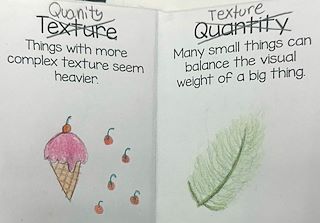 Quanity
Texture
Things with more
complex texture seem
heavier.
Texture
Quantity
Many small things can
balance the visual
weight of a big thing.